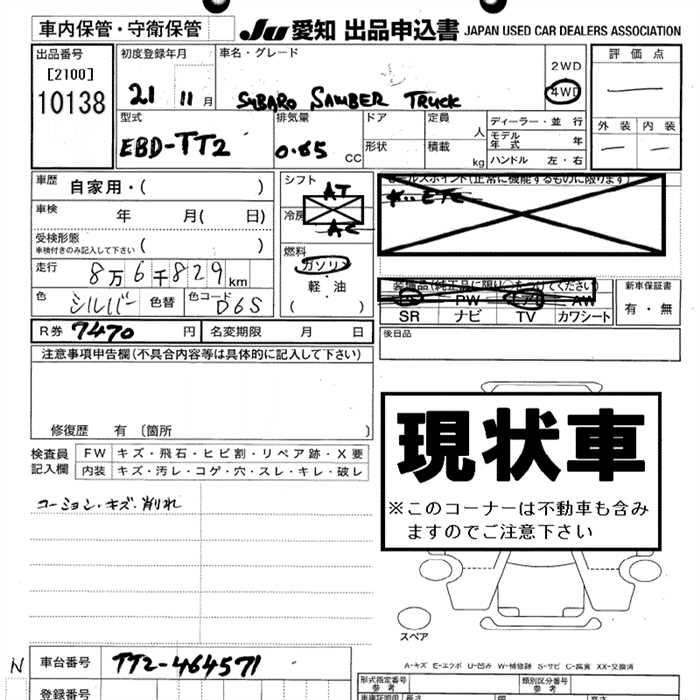 車内保管・守衛保管
JU 愛知 出品申込書 JAPAN USED CAR DEALERS ASSOCIATION
出品番号
[2100]
10138
初度登録年月
21 11月
車名・グレード
SUBARO SAMBER TRUCK
2WD
4WD
評価点
型式
EBD-TT2
排気量
0.65 CC
ドア
形状
定員 人
積載 kg
ディーラー・並行
モデル年式 年
ハンドル 左・右
外装 内装
車歴 自家用・( )
車検 年 月( 日)
受検形態
車検付きのみ記入して下さい ( )
走行 8万6千829km
色 シルバー 色替 色コード D6S
R券 7470 円 名変期限 月 日
シフト AT
冷房 AC
燃料
ガソリン
軽・油
( )
セールスポイント(正常に機能するものに限ります)
ETC
装備品(純正品に限り○をつけてください)
PW エアB AW
SR ナビ TV カワシート
新車保証書
有・無
後日品
注意事項申告欄(不具合内容等は具体的に記入して下さい)
修復歴 有 〔箇所 〕
検査員記入欄
FW キズ・飛石・ヒビ割・リペア跡・X要
内装 キズ・汚レ・コゲ・穴・スレ・キレ・破レ
コーション・キズ・削れ
現状車
※このコーナーは不動車も含みますのでご注意下さい
スペア
A-キズ E-エクボ U-凹み W-補修跡 S-サビ C-腐食 XX-交換済
N
車台番号 TT2-464571
登録番号
形式指定番号
参考
類別区分番号
参考